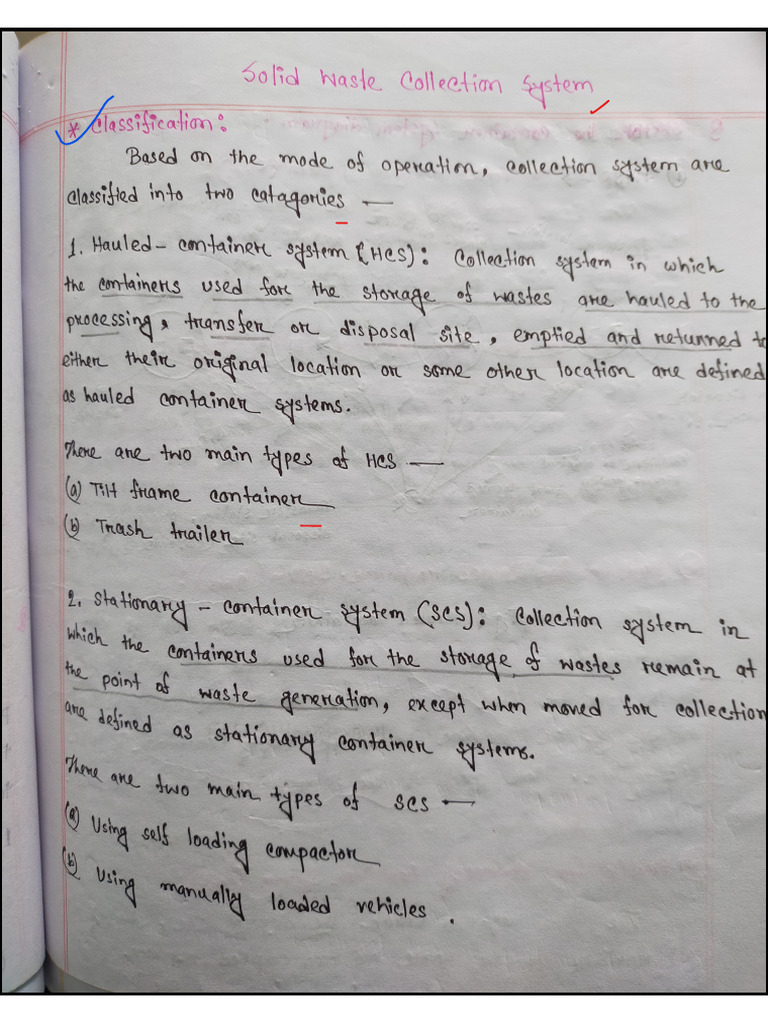 Solid Waste Collection System
* Classification:
Based on the mode of operation, collection system are
classified into two catagories —
1. Hauled-container system (HCS): Collection system in which
the containers used for the storage of wastes are hauled to the
processing, transfer or disposal site, emptied and returned to
either their original location or some other location are defined
as hauled container systems.
There are two main types of HCS —
(a) Tilt frame container
(b) Trash trailer
2. Stationary-container system (SCS): Collection system in
which the containers used for the storage of wastes remain at
the point of waste generation, except when moved for collection
are defined as stationary container systems.
There are two main types of SCS —
(a) Using self loading compactor
(b) Using manually loaded vehicles.